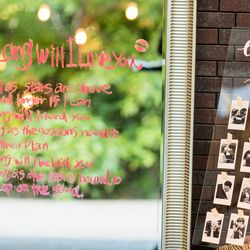 ong will I Love you
as stars are above
longer if I can
long will I need you
g as the seasons need to
their Plan
long will I be with you
as the sea is bound to
on the sand